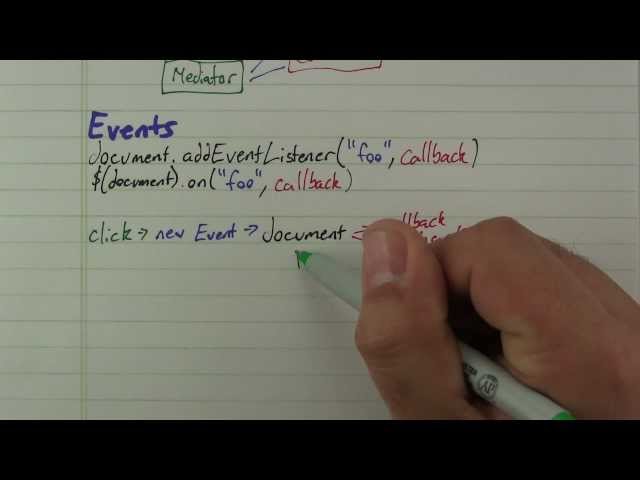 Mediator
Events
document.addEventListener("foo", callback)
$(document).on("foo", callback)
click → new Event → document